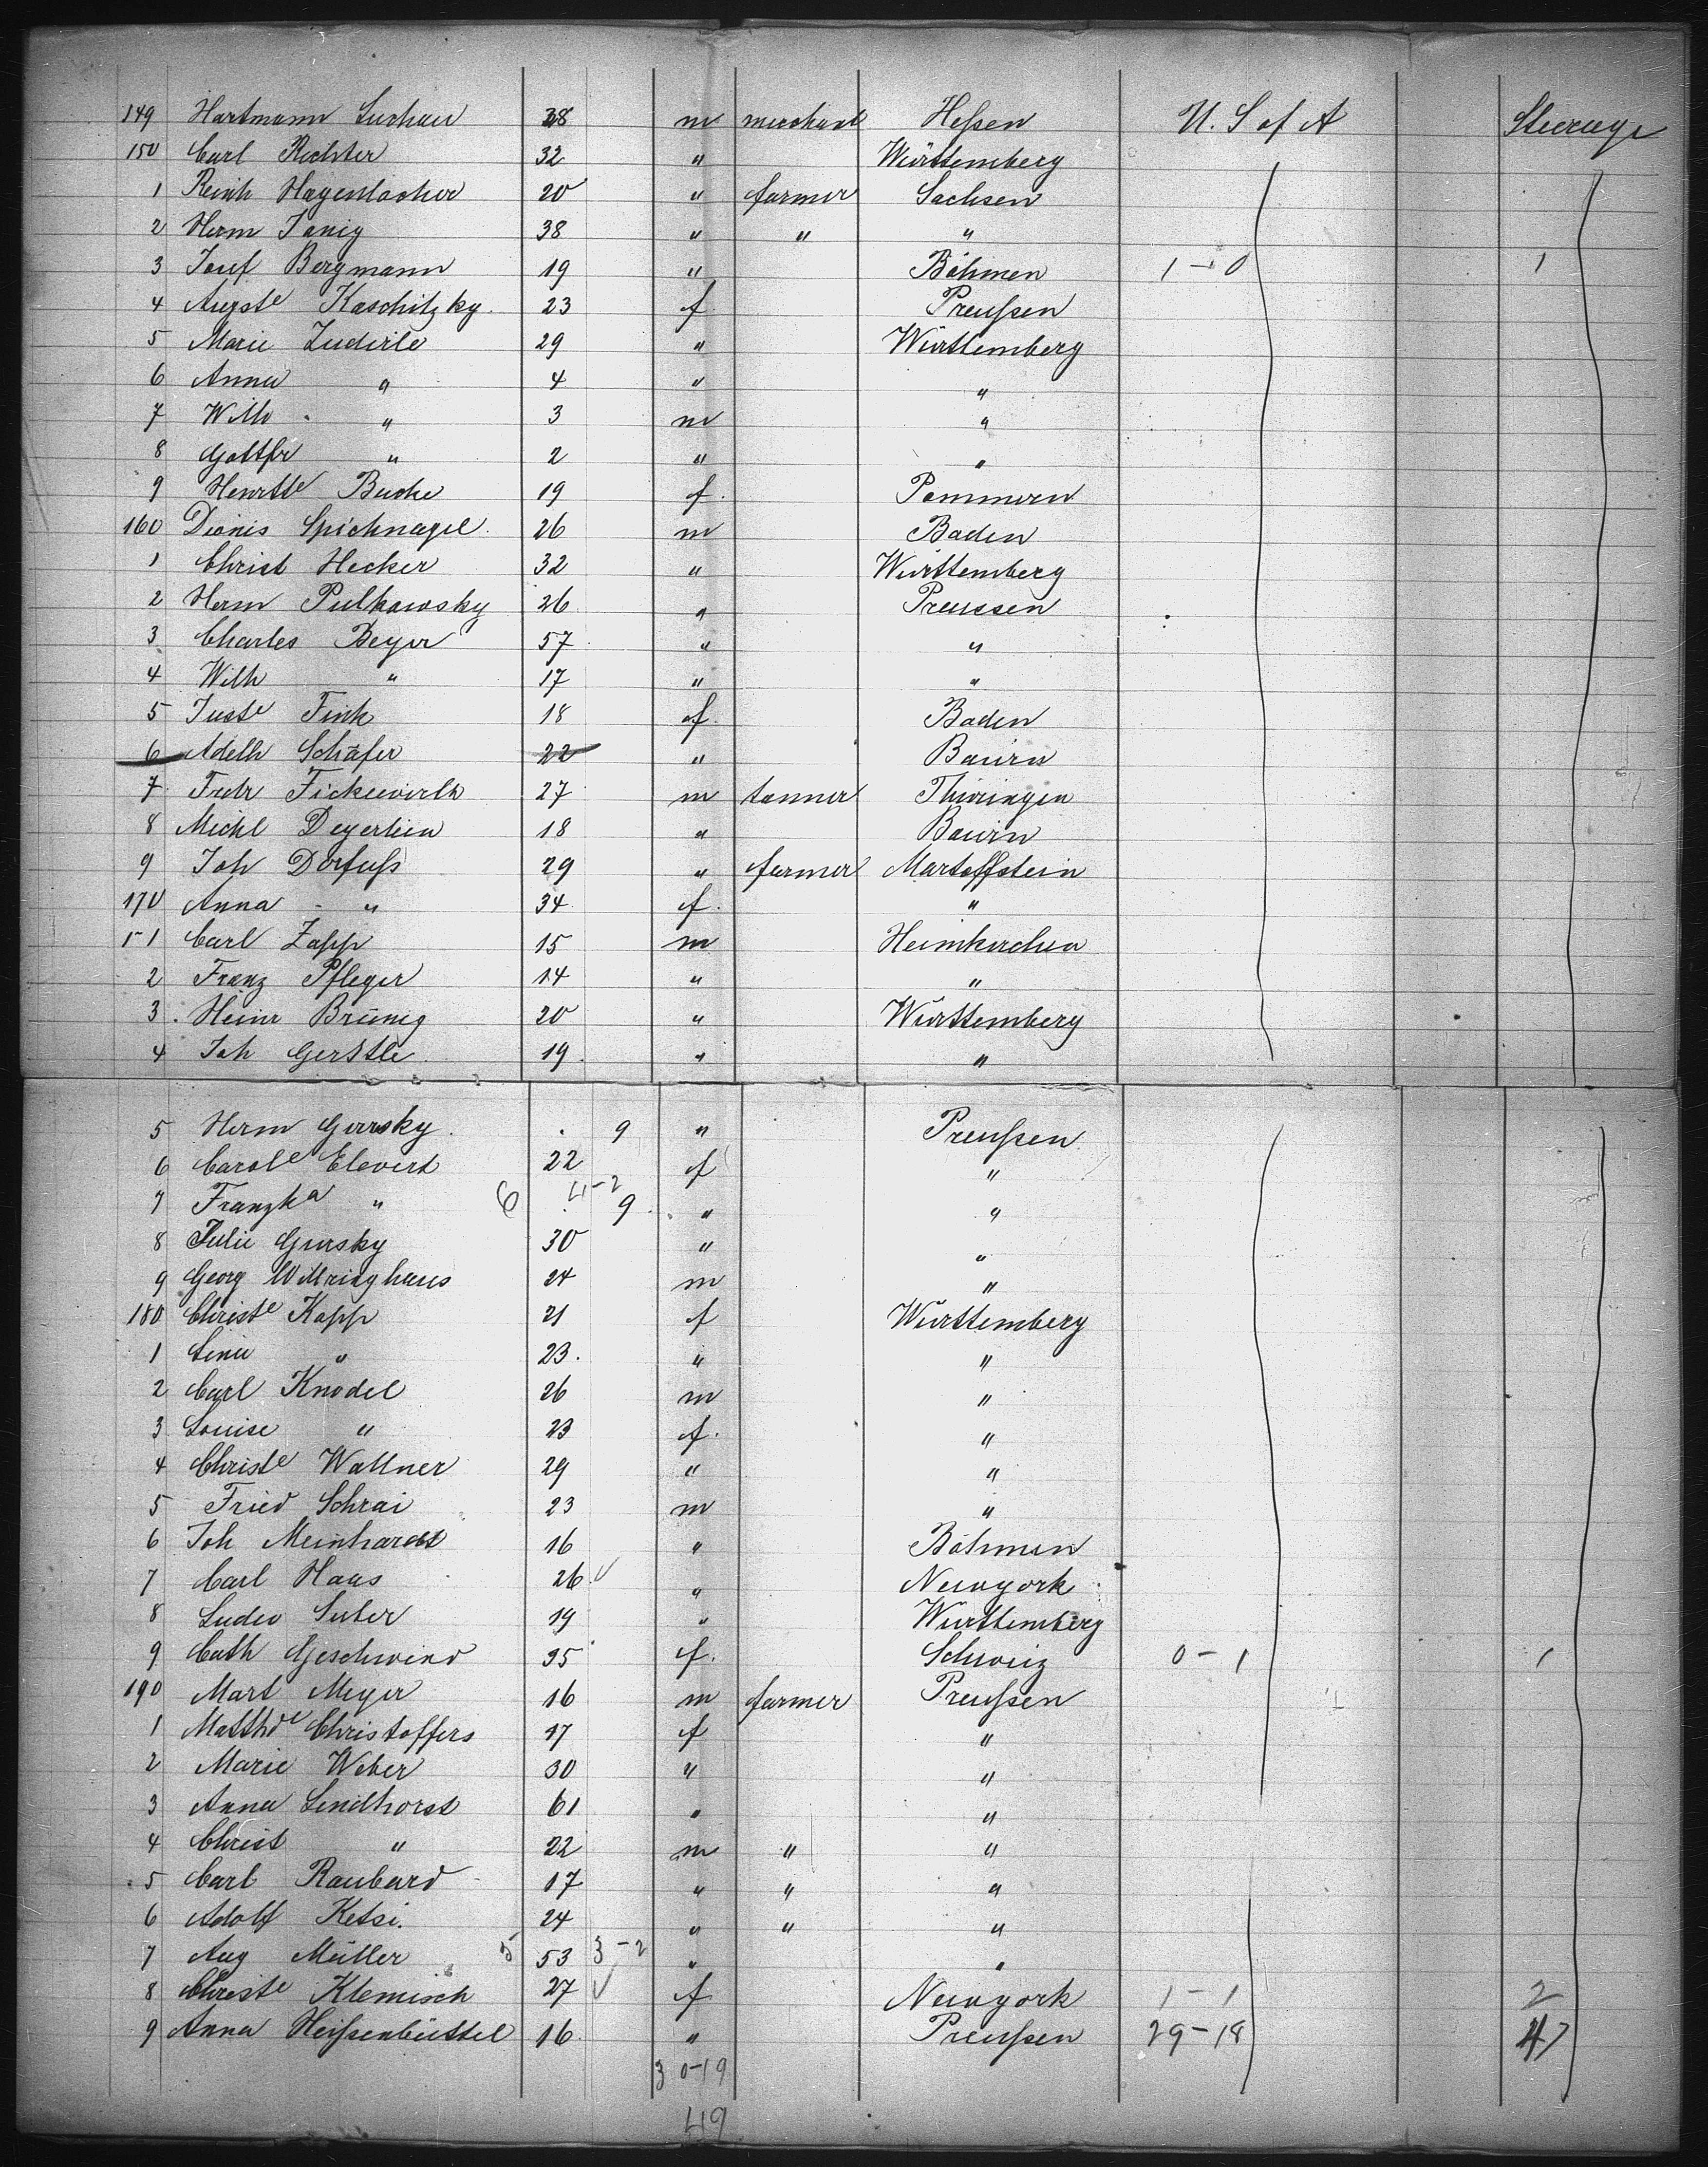 149 Hartmann 28 m merchant Heßen U. S of A Steerage
150 Carl Richter 32 " Württemberg
1 Reinh Hagenlocher 20 " farmer Sachsen
2 Herm Janig 38 " " "
3 Josef Bergmann 19 " Böhmen 1-0 1
4 Augste Kaschitzky 23 f. Preußen
5 Marie 29 " Württemberg
6 Anna " 4 " "
7 Wilh " 3 m "
8 Gottfr " 2 " "
9 Henrtte Buche 19 f. Pommern
160 Dionis Spichnagel 26 m Baden
1 Christ Hecker 32 " Württemberg
2 Herm Pulkowsky 26 " Preussen
3 Charles Beyer 57 " "
4 Wilh " 17 " "
5 Juste Fink 18 f. Baden
6 Adelh Schäfer 22 " Baiern
7 Fredr Fickewirth 27 m tanner Thüringen
8 Michl Degerlein 18 " Baiern
9 Joh Dorfuß 29 " farmer Martoffstein
170 Anna " 34 f. "
1 Carl Zapp 15 m Heimkirchen
2 Franz Pfleger 14 " "
3 Heinr Brünig 20 " Württemberg
4 Joh Gerstle 19 " "
5 Herm Gursky 9 " Preußen
6 Carole Elevert 22 f "
7 Franzka " 6 4-2 9 " "
8 Julie Gursky 30 " "
9 Georg Willringhaus 24 m "
180 Christe Kapp 21 f Württemberg
1 Line " 23. " "
2 Carl Knodel 26 m "
3 Louise " 23 f. "
4 Christe Wallner 29 " "
5 Fried Schrai 23 m "
6 Joh Meinhardt 16 " Böhmen
7 Carl Haas 26 " Newyork
8 Ludw Suter 19 " Württemberg
9 Cath Geschwind 35 f. Schweiz 0-1 1
190 Mart Meyer 16 m farmer Preußen
1 Matthde Christoffers 17 f "
2 Marie Weber 30 " "
3 Anna Lindhorst 61 " "
4 Christ " 22 m " "
5 Carl Raubard 17 " " "
6 Adolf Ketsi. 24 " " "
7 Aug Müller 5 53 3-2 " "
8 Christe Klemisch 27 f Newyork 1-1 2
9 Anna Heißenbüttel 16 " Preußen 29-18 47
30-19
49